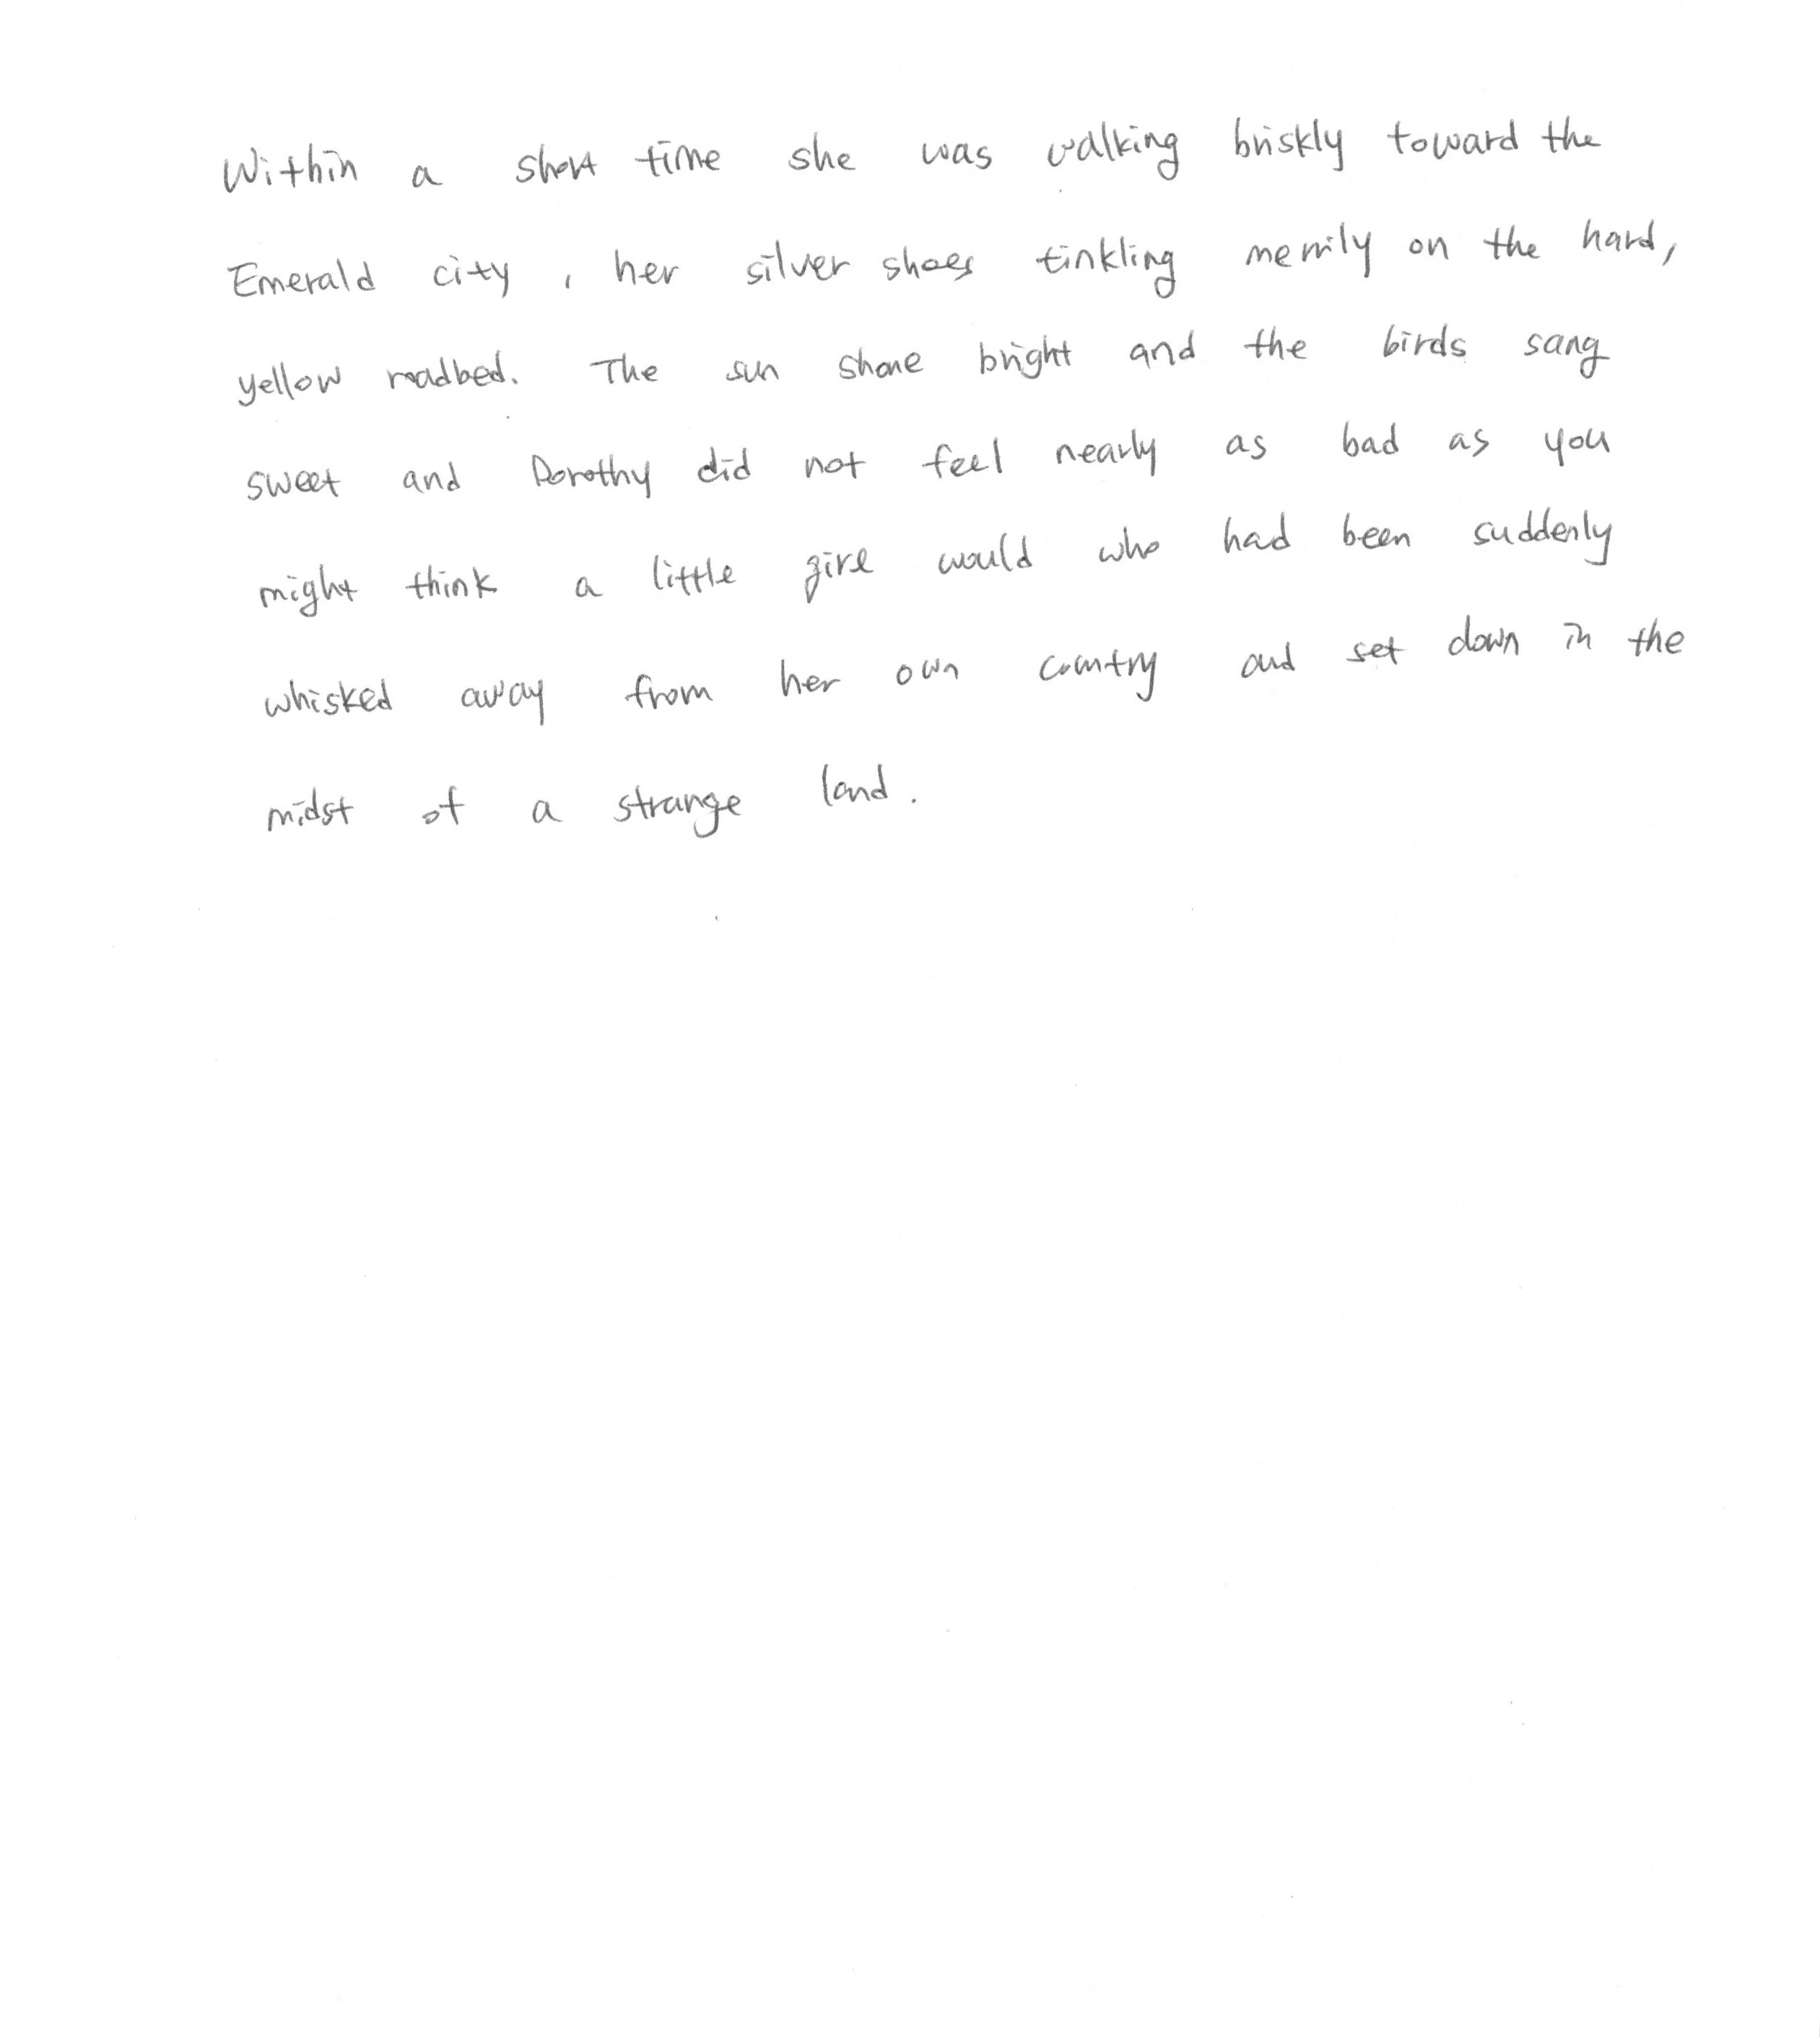 Within a short time she was walking briskly toward the
Emerald city, her silver shoes tinkling merrily on the hard,
yellow roadbed. The sun shone bright and the birds sang
sweet and Dorothy did not feel nearly as bad as you
might think a little girl would who had been suddenly
whisked away from her own country and set down in the
midst of a strange land.